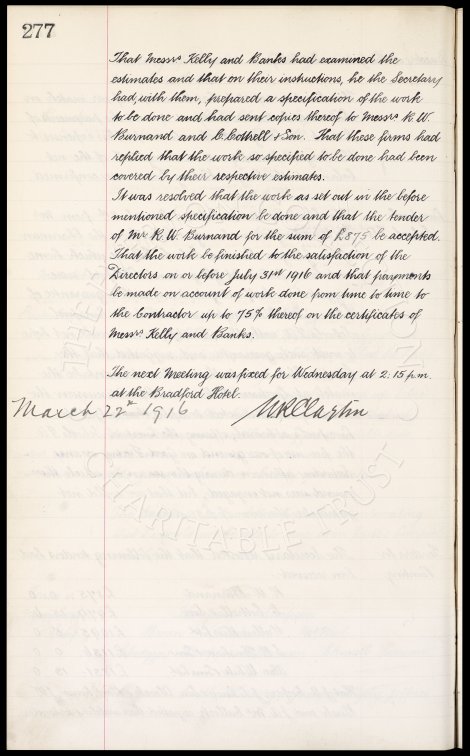 277
That Messrs Kelly and Banks had examined the
estimates and that on their instructions, he the Secretary
had, with them, prepared a specification of the work
to be done and had sent copies thereof to Messrs R. W.
Burnand and C. Cothell & Son. That these firms had
replied that the work so specified to be done had been
covered by their respective estimates.
It was resolved that the work as set out in the before
mentioned specification be done and that the tender
of Mr R. W. Burnand for the sum of £875 be accepted.
That the work be finished to the satisfaction of the
Directors on or before July 31st 1916 and that payments
be made on account of work done from time to time to
the Contractor up to 75% thereof on the certificates of
Messrs Kelly and Banks.
The next Meeting was fixed for Wednesday at 2:15 p.m.
at the Bradford Hotel.
March 22nd 1916
CHARITABLE TRUST